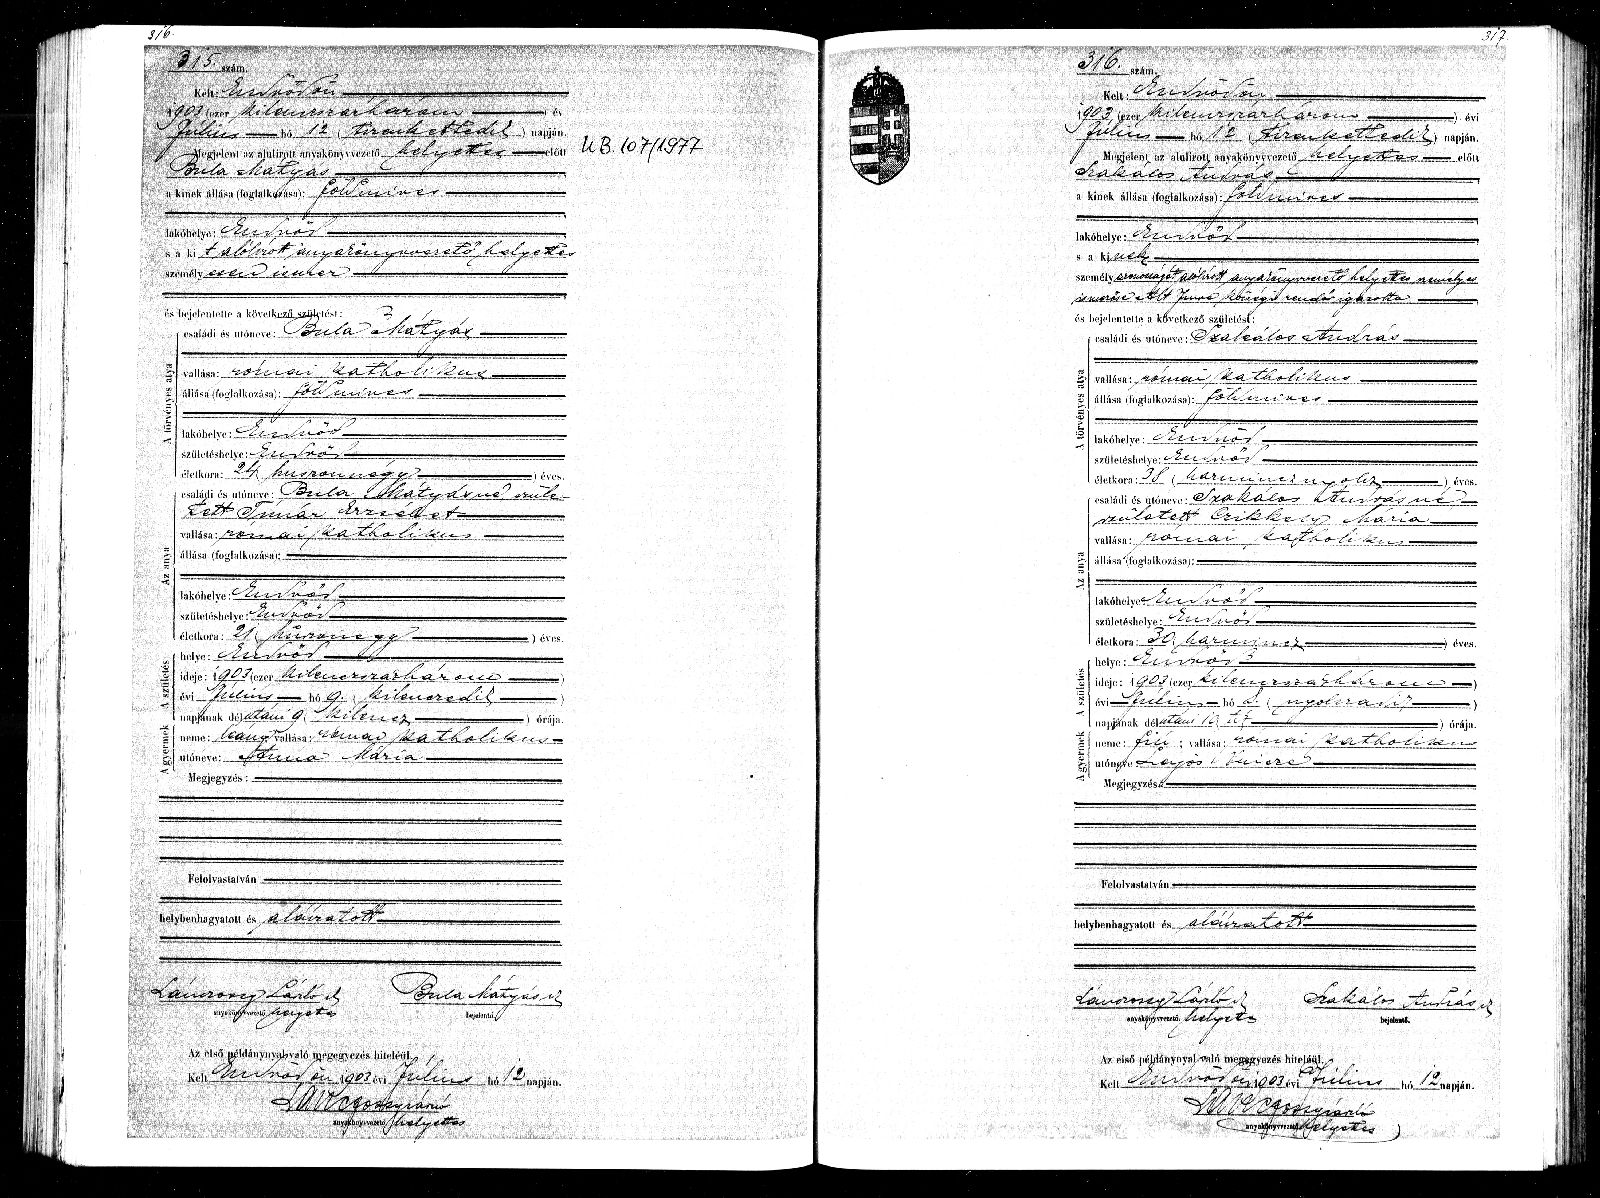 316.
315. szám.
Kelt: Endrődön
1903 (ezer kilenczszázhárom) év
Július hó 12 (tizenkettedik) napján.
Megjelent az alulirott anyakönyvvezető helyettes előtt
Bula Mátyás
a kinek állása (foglalkozása): földmives
lakóhelye: Endrőd
s a kit alólirott anyakönyvvezető helyettes
személyesen ismer
és bejelentette a következő születést:
A törvényes atya
családi és utóneve: Bula Mátyás
vallása: római katholikus
állása (foglalkozása): földmives
lakóhelye: Endrőd
születéshelye: Endrőd
életkora: 24 (huszonnégy) éves.
Az anya
családi és utóneve: Bula Mátyásné szüle-
tett Tímár Erzsébet
vallása: római katholikus
állása (foglalkozása):
lakóhelye: Endrőd
születéshelye: Endrőd
életkora: 21 (huszonegy) éves.
A születés
helye: Endrőd
ideje: 1903 (ezer kilenczszázhárom)
évi Július hó 9. (kilenczedik)
napjának délutáni 9 (kilencz) órája.
A gyermek
neme: leány vallása: római katholikus
utóneve: Anna Mária
Megjegyzés:
Felolvastatván
helybenhagyatott és aláiratott
László Bula Mátyás
anyakönyvvezető helyettes bejelentő.
Az első példánynyal való megegyezés hiteléül.
Kelt Endrődön 1903 évi Július hó 12 napján.
anyakönyvvezető helyettes
U.B. 107/1977
317.
316. szám.
Kelt: Endrődön
1903 (ezer kilenczszázhárom) évi
Július hó 12 (tizenkettedik) napján.
Megjelent az alulirott anyakönyvvezető helyettes előtt
Szakálos András
a kinek állása (foglalkozása): földmives
lakóhelye: Endrőd
s a kinek
személyazonosságát alólirott anyakönyvvezető helyettes személyes
ismerőse községi rendőr igazolta
és bejelentette a következő születést:
A törvényes atya
családi és utóneve: Szakálos András
vallása: római katholikus
állása (foglalkozása): földmives
lakóhelye: Endrőd
születéshelye: Endrőd
életkora: 38 (harmincznyolcz) éves.
Az anya
családi és utóneve: Szakálos Andrásné
született Czikkely Mária
vallása: római katholikus
állása (foglalkozása):
lakóhelye: Endrőd
születéshelye: Endrőd
életkora: 30 (harmincz) éves.
A születés
helye: Endrőd
ideje: 1903 (ezer kilenczszázhárom)
évi Július hó 8. (nyolczadik)
napjának délutáni 10 tíz) órája.
A gyermek
neme: fiú; vallása: római katholikus
utóneve Lajos Imre
Megjegyzés:
Felolvastatván
helybenhagyatott és aláiratott
László Szakálos András
anyakönyvvezető helyettes bejelentő.
Az első példánynyal való megegyezés hiteléül.
Kelt Endrődön 1903 évi Július hó 12 napján.
anyakönyvvezető helyettes